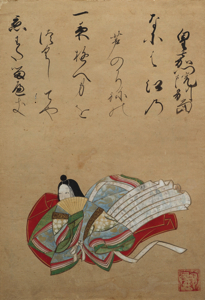 皇嘉門院別当
なには江乃
芦のかりねの
一夜ゆへ身を
つくしてや
恋わたるへき